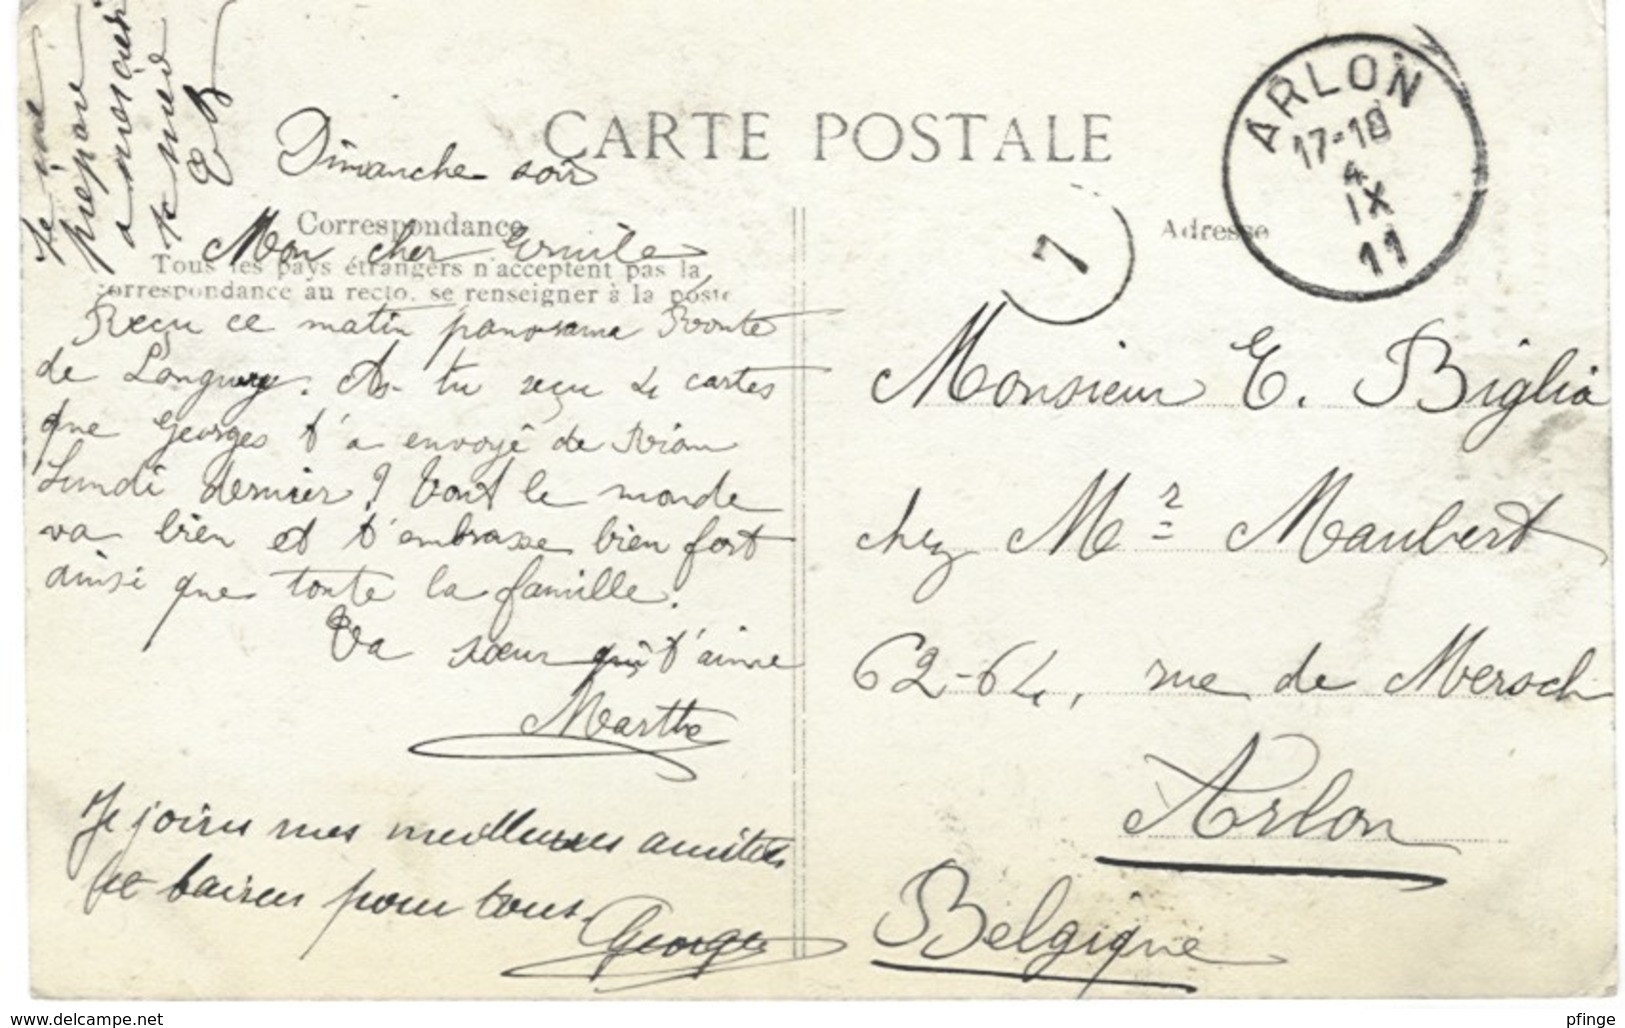 Je me
prépare
a
te
CARTE POSTALE
ARLON
17-18
4
IX
11
1
Dimanche soir
Correspondance
Adresse
Mon cher Emile
Tous les pays étrangers n'acceptent pas la
correspondance au recto, se renseigner à la poste
Reçu ce matin panorama Route
de Longwy. As-tu reçu 4 cartes
que Georges t'a envoyé de
Lundi dernier? Tout le monde
va bien et t'embrasse bien fort
ainsi que toute la famille.
Ta sœur qui t'aime
Marthe
Je joins mes meilleures amitiés
et baisers pour tous.
Georges
Monsieur E. Biglia
chez Mr Maubert
62-64, rue de Mersch
Arlon
Belgique
www.delcampe.net
pfinge